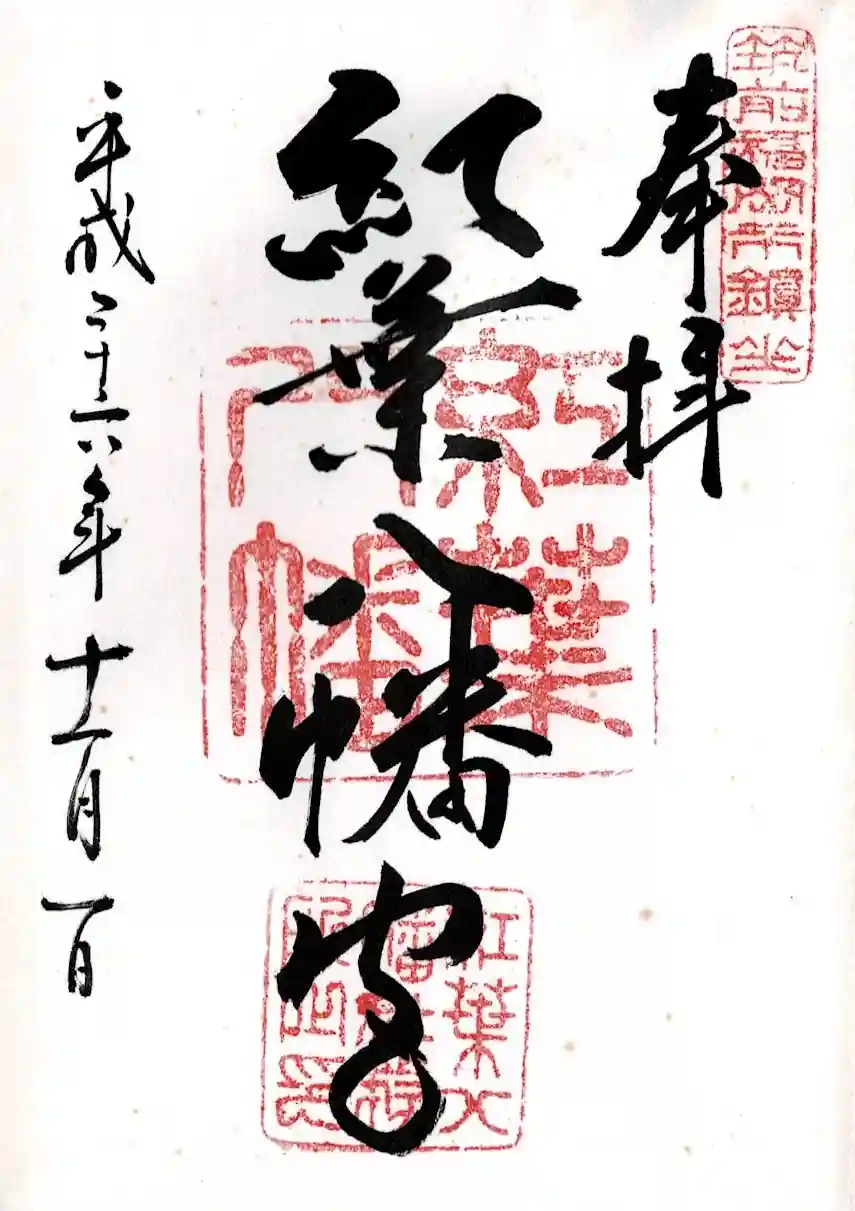 筑前福岡市鎮坐
奉拝
紅葉八幡宮
紅葉八幡
紅葉八
幡社務
所之印
平成二十六年十一月一日